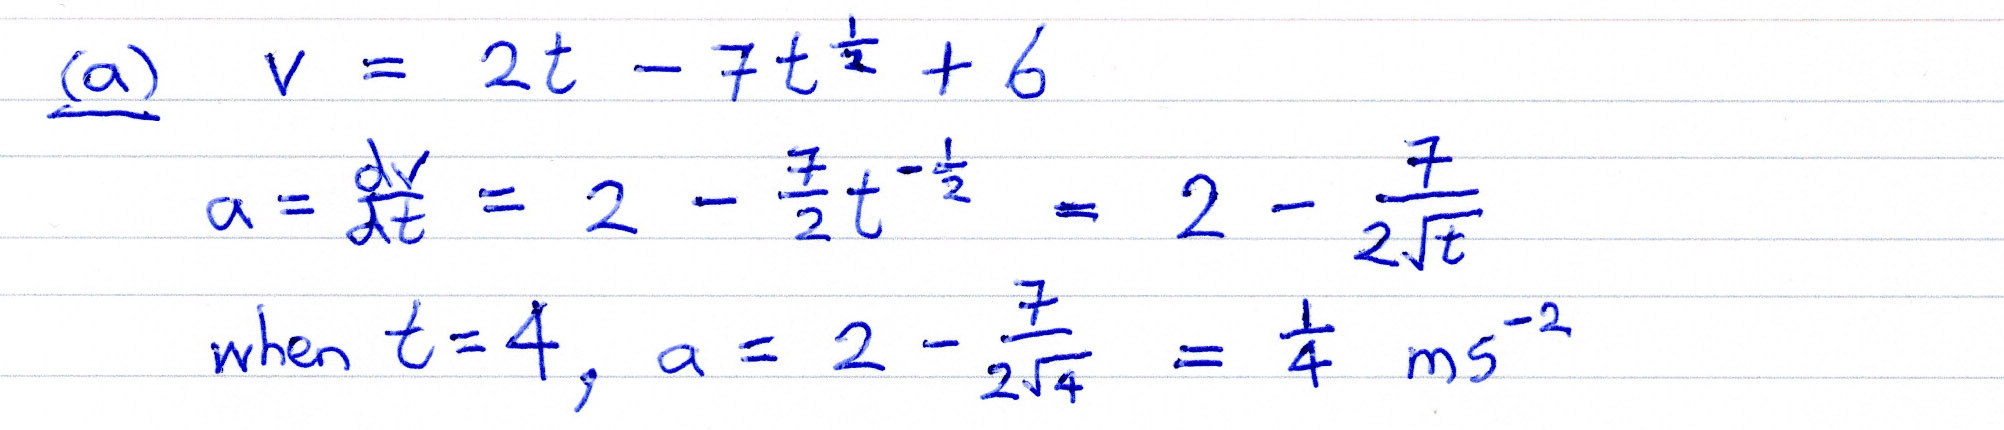 (a) v = 2t - 7t^{\frac{1}{2}} + 6
a = \frac{dv}{dt} = 2 - \frac{7}{2}t^{-\frac{1}{2}} = 2 - \frac{7}{2\sqrt{t}}
when t = 4, a = 2 - \frac{7}{2\sqrt{4}} = \frac{1}{4} ms^{-2}